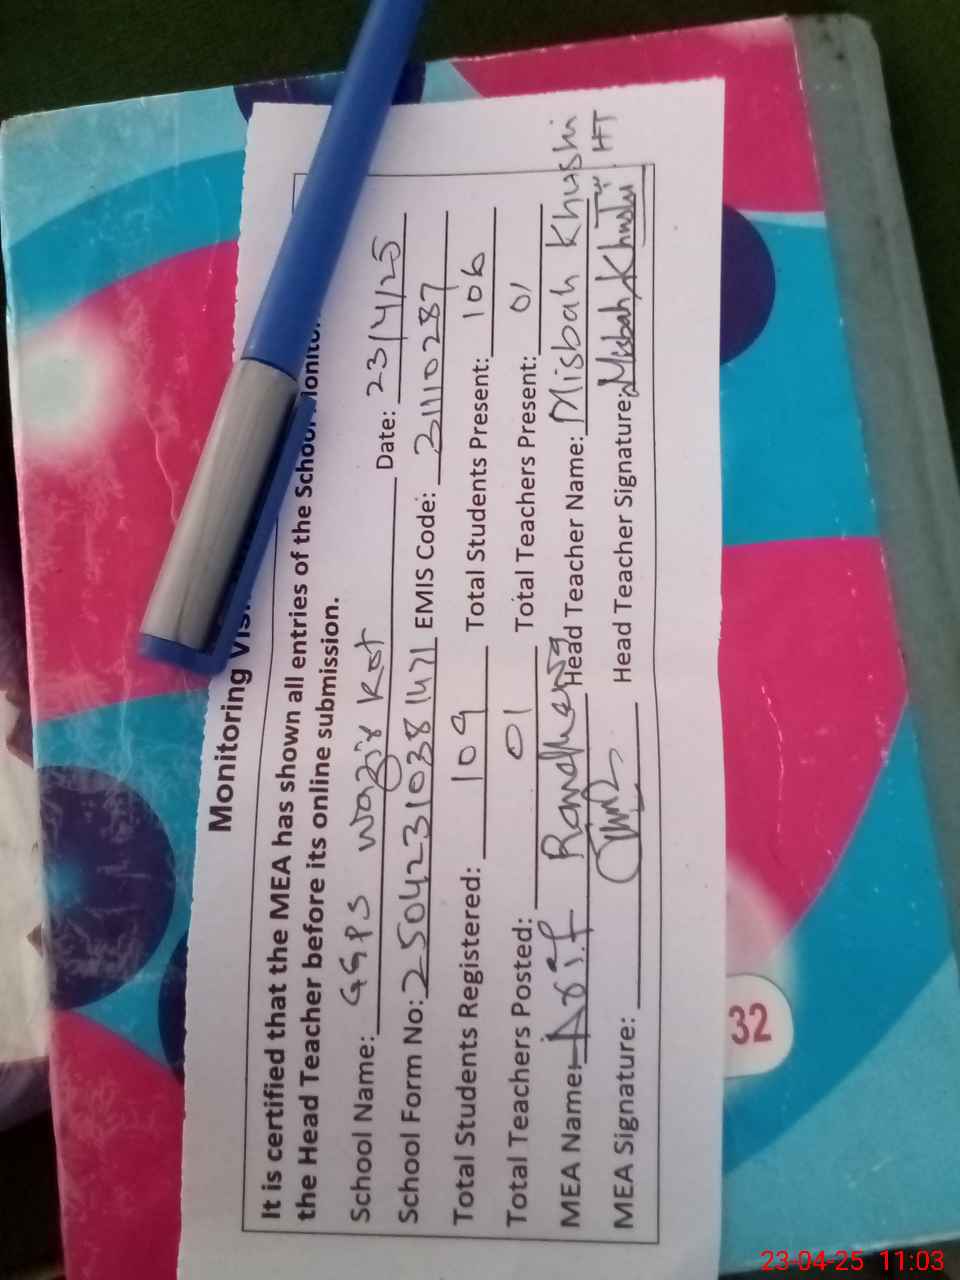 Monitoring
It is certified that the MEA has shown all entries of the School Monitor
the Head Teacher before its online submission.
School Name: GGPS Wazir Kot Date: 23/4/25
School Form No: 25042310381471 EMIS Code: 31110287
Total Students Registered: 109 Total Students Present: 106
Total Teachers Posted: 01 Total Teachers Present: 01
MEA Name: Head Teacher Name: Misbah Khushi
MEA Signature: Head Teacher Signature: Misbah Khushi HT
32
23-04-25 11:03